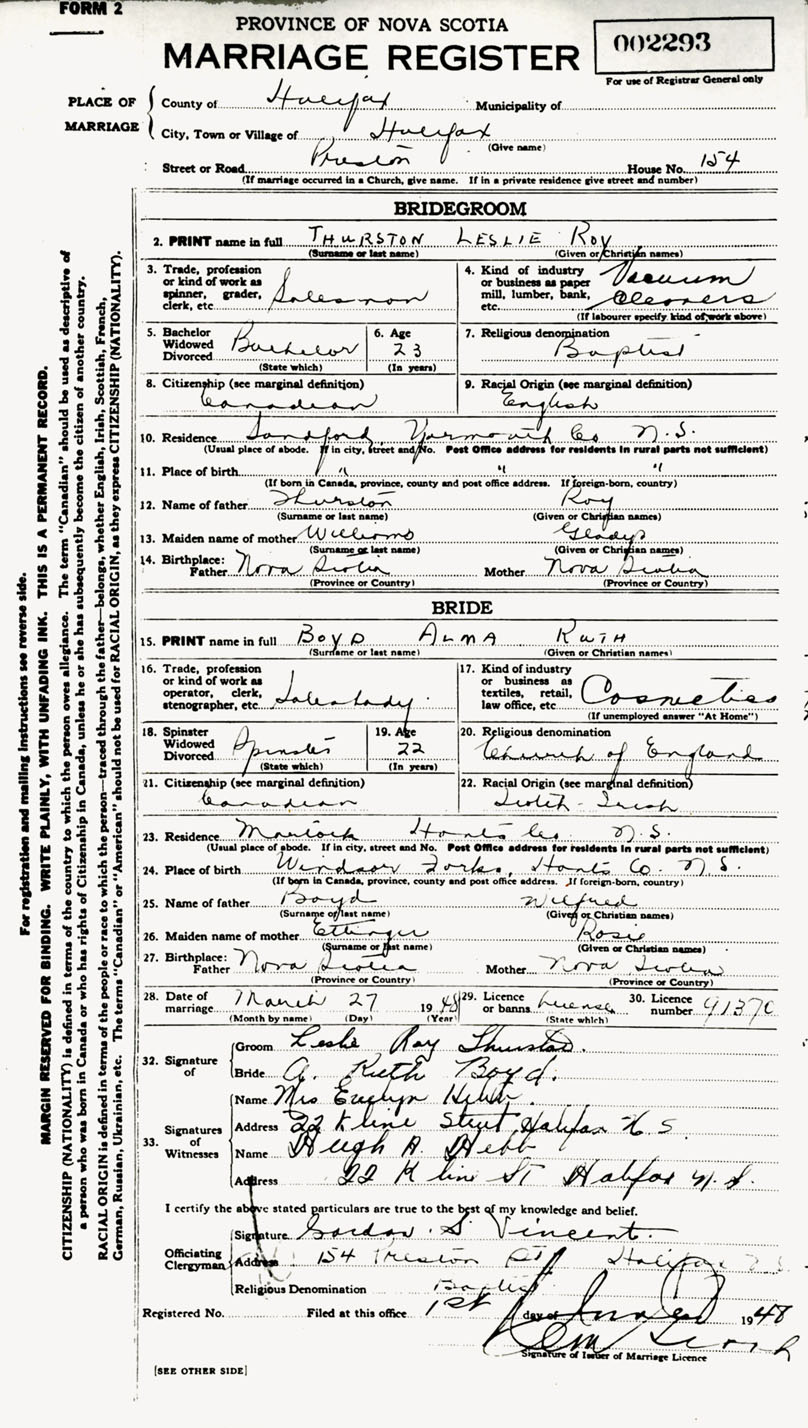 FORM 2
PROVINCE OF NOVA SCOTIA
MARRIAGE REGISTER
002293
For use of Registrar General only
PLACE OF MARRIAGE
County of Halifax Municipality of
City, Town or Village of Halifax
(Give name)
Street or Road Preston House No. 154
(If marriage occurred in a Church, give name. If in a private residence give street and number)
BRIDEGROOM
2. PRINT name in full THURSTON LESLIE ROY
(Surname or last name) (Given or Christian names)
3. Trade, profession or kind of work as spinner, grader, clerk, etc. Salesman
4. Kind of industry or business as paper mill, lumber, bank, etc. Vacuum Cleaners
(If labourer specify kind of work above)
5. Bachelor Widowed Divorced Bachelor
(State which)
6. Age 23
(In years)
7. Religious denomination
Baptist
8. Citizenship (see marginal definition)
Canadian
9. Racial Origin (see marginal definition)
English
10. Residence Sandford, Yarmouth Co N.S.
(Usual place of abode. If in city, street and No. Post Office address for residents in rural parts not sufficient)
11. Place of birth " " "
(If born in Canada, province, county and post office address. If foreign-born, country)
12. Name of father Thurston Roy
(Surname or last name) (Given or Christian names)
13. Maiden name of mother Williams Gladys
(Surname or last name) (Given or Christian names)
14. Birthplace: Father Nova Scotia Mother Nova Scotia
(Province or Country) (Province or Country)
BRIDE
15. PRINT name in full BOYD ALMA RUTH
(Surname or last name) (Given or Christian names)
16. Trade, profession or kind of work as operator, clerk, stenographer, etc Saleslady
17. Kind of industry or business as textiles, retail, law office, etc Cosmetics
(If unemployed answer "At Home")
18. Spinster Widowed Divorced Spinster
(State which)
19. Age 22
(In years)
20. Religious denomination
Church of England
21. Citizenship (see marginal definition)
Canadian
22. Racial Origin (see marginal definition)
Scotch-Irish
23. Residence Martock Hants Co. N.S.
(Usual place of abode. If in city, street and No. Post Office address for residents in rural parts not sufficient)
24. Place of birth Windsor Forks, Hants Co. N.S.
(If born in Canada, province, county and post office address. If foreign-born, country)
25. Name of father Boyd Wilfred
(Surname or last name) (Given or Christian names)
26. Maiden name of mother Ettinger Rosie
(Surname or last name) (Given or Christian names)
27. Birthplace: Father Nova Scotia Mother Nova Scotia
(Province or Country) (Province or Country)
28. Date of marriage March 27 1948
(Month by name) (Day) (Year)
29. Licence or banns license
(State which)
30. Licence number 91370
32. Signature of
Groom Leslie Roy Thurston.
Bride A. Ruth Boyd.
33. Signatures of Witnesses
Name Mrs Evelyn Hebb.
Address 22 Kline Street Halifax N.S.
Name Hugh A. Hebb
Address 22 Kline St Halifax N.S.
I certify the above stated particulars are true to the best of my knowledge and belief.
Officiating Clergyman
Signature Gordon S. Vincent.
Address 154 Preston St Halifax N.S.
Religious Denomination Baptist
Registered No. Filed at this office 1st day of 1948
Signature of Issuer of Marriage Licence
[SEE OTHER SIDE]
For registration and mailing instructions see reverse side.
MARGIN RESERVED FOR BINDING. WRITE PLAINLY, WITH UNFADING INK. THIS IS A PERMANENT RECORD.
CITIZENSHIP (NATIONALITY) is defined in terms of the country to which the person owes allegiance. The term "Canadian" should be used as descriptive of
a person who was born in Canada or who has rights of Citizenship in Canada, unless he or she has subsequently become the citizen of another country.
RACIAL ORIGIN is defined in terms of the people or race to which the person—traced through the father—belongs, whether English, Irish, Scottish, French,
German, Russian, Ukrainian, etc. The terms "Canadian" or "American" should not be used for RACIAL ORIGIN, as they express CITIZENSHIP (NATIONALITY).